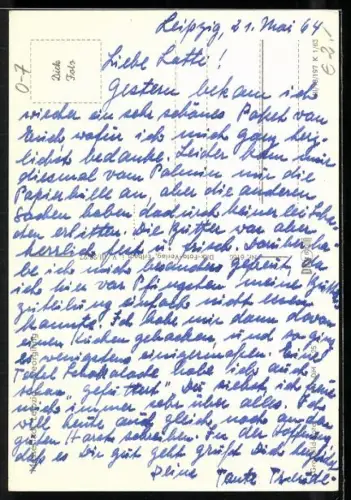 Leipzig, 21. Mai 64
Liebe Lotti!
Gestern bekam ich
wieder ein sehr schönes Paket von
Euch wofür ich mich ganz herz-
lichst bedanke. Leider kam mir
diesmal vom Palmin nur die
Papierhülle an, aber die anderen
Sachen haben dadurch keinerlei Scha-
den erlitten. Die Butter war aber
herrlich fest u. frisch. Darüber ha-
be ich mich besonders gefreut, da
ich hier vor Pfingsten meine Butter-
zuteilung einfach nicht
konnte. Ich habe mir dann davon
einen Kuchen gebacken, und so ging
es wenigstens einigermaßen. Eine
Tafel Schokolade habe ich auch
schon "gefuttert". Du siehst, ich freue
mich immer sehr über alles. Ich
will heute auch gleich noch an
schreiben. In der Hoffnung,
daß es Dir gut geht grüßt Dich herzlichst
Deine Tante
Dick
Foto
0-7